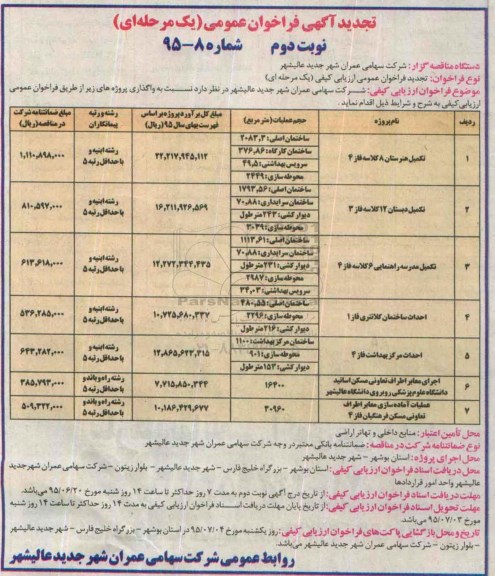 تجدید آگهی فراخوان عمومی (یک مرحله‌ای)
نوبت دوم شماره ۸-۹۵
دستگاه مناقصه گزار: شرکت سهامی عمران شهر جدید عالیشهر
نوع فراخوان: تجدید فراخوان عمومی ارزیابی کیفی (یک مرحله ای)
موضوع فراخوان ارزیابی کیفی: شرکت سهامی عمران شهر جدید عالیشهر در نظر دارد نسبت به واگذاری پروژه های زیر از طریق فراخوان عمومی
ارزیابی کیفی به شرح و شرایط ذیل اقدام نماید.
ردیف نام پروژه حجم عملیات (متر مربع) مبلغ کل برآورد پروژه بر اساس فهرست بهای سال ۹۵ (ریال) رشته و رتبه پیمانکاران مبلغ ضمانتنامه شرکت در مناقصه (ریال)
۱ تکمیل هنرستان ۸ کلاسه فاز ۴
ساختمان اصلی: ۲۰۸۳,۳
ساختمان کارگاه: ۳۷۶,۸۶
سرویس بهداشتی: ۴۹,۵
محوطه سازی: ۲۴۴۹
۲۲,۲۱۷,۹۴۵,۱۱۲ رشته ابنیه و با حداقل رتبه ۵ ۱,۱۱۰,۸۹۸,۰۰۰
۲ تکمیل دبستان ۱۲ کلاسه فاز ۳
ساختمان اصلی: ۱۷۹۳,۵۶
ساختمان سرایداری: ۷۰,۸۸
دیوار کشی: ۲۴۳ متر طول
محوطه سازی: ۳۰۳۹
۱۶,۲۱۱,۹۲۶,۵۶۹ رشته ابنیه و با حداقل رتبه ۵ ۸۱۰,۵۹۷,۰۰۰
۳ تکمیل مدرسه راهنمایی ۶ کلاسه فاز ۴
ساختمان اصلی: ۱۱۱۳,۶۱
ساختمان سرایداری: ۷۰,۸۸
دیوار کشی: ۲۳۱ متر طول
محوطه سازی: ۲۹۸۷
سرویس بهداشتی: ۳۴,۰۳
۱۲,۲۷۲,۳۴۴,۴۳۵ رشته ابنیه و با حداقل رتبه ۵ ۶۱۳,۶۱۸,۰۰۰
۴ احداث ساختمان کلانتری فاز ۱
ساختمان اصلی: ۴۸۰,۵۵
محوطه سازی: ۲۲۹۶
دیوار کشی: ۲۱۶ متر طول
۱۰,۷۲۵,۶۸۰,۳۳۷ رشته ابنیه و با حداقل رتبه ۵ ۵۳۶,۲۸۵,۰۰۰
۵ احداث مرکز بهداشت فاز ۴
ساختمان مرکز بهداشت: ۱۱۰۰
محوطه سازی: ۹۰۱
دیوار کشی: ۱۵۳ متر طول
۱۲,۸۶۵,۶۴۳,۳۱۵ رشته ابنیه و با حداقل رتبه ۵ ۶۴۳,۲۸۲,۰۰۰
۶ اجرای معابر اطراف تعاونی مسکن اساتید دانشگاه علوم پزشکی روبروی دانشگاه عالیشهر ۱۶۴۰۰ ۷,۷۱۵,۸۵۰,۳۴۴ رشته راه و باند و با حداقل رتبه ۵ ۳۸۵,۷۹۳,۰۰۰
۷ عملیات آماده سازی معابر اطراف تعاونی مسکن فرهنگیان فاز ۴ ۲۰۹۶۰ ۱۰,۱۸۶,۴۲۹,۶۷۷ رشته راه و باند و با حداقل رتبه ۵ ۵۰۹,۳۲۲,۰۰۰
محل تأمین اعتبار: منابع داخلی و تهاتر اراضی
نوع ضمانتنامه شرکت در مناقصه: ضمانتنامه بانکی معتبر در وجه شرکت سهامی عمران شهر جدید عالیشهر
محل اجرای پروژه: استان بوشهر - شهر جدید عالیشهر
محل دریافت اسناد فراخوان ارزیابی کیفی: استان بوشهر - بزرگراه خلیج فارس - شهر جدید عالیشهر - بلوار زیتون - شرکت سهامی عمران شهر جدید
عالیشهر واحد امور قراردادها
مهلت دریافت اسناد فراخوان ارزیابی کیفی: از تاریخ درج آگهی نوبت دوم به مدت ۷ روز حداکثر تا ساعت ۱۴ روز شنبه مورخ ۹۵/۰۶/۲۰ می‌باشد.
مهلت تحویل اسناد فراخوان ارزیابی کیفی: از تاریخ پایان مهلت دریافت اسناد فراخوان ارزیابی کیفی به مدت ۱۴ روز حداکثر تا ساعت ۱۴ روز شنبه
مورخ ۹۵/۰۷/۰۳ می‌باشد.
تاریخ و محل بازگشایی پاکت‌های فراخوان ارزیابی کیفی: روز یکشنبه مورخ ۹۵/۰۷/۰۴ در استان بوشهر - بزرگراه خلیج فارس - شهر جدید عالیشهر
- بلوار زیتون - شرکت سهامی عمران شهر جدید عالیشهر می‌باشد.
روابط عمومی شرکت سهامی عمران شهر جدید عالیشهر